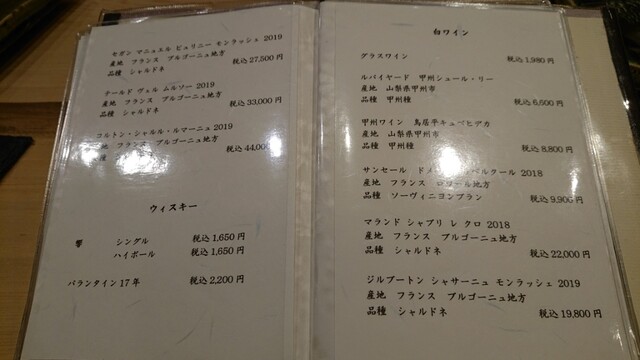 セガン マニュエル ピュリニー モンラッシェ 2019
産地 フランス ブルゴーニュ地方
品種 シャルドネ
税込 27,500 円
テールド ヴェル ムルソー 2019
産地 フランス ブルゴーニュ地方
品種 シャルドネ
税込 33,000 円
コルトン・シャルル・ルマーニュ 2019
地 フランス ブルゴーニュ地方
税込 44,00
ウィスキー
響 シングル 税込 1,650 円
ハイボール 税込 1,650 円
バランタイン 17 年 税込 2,200 円
白ワイン
グラスワイン 税込 1,980 円
ルバイヤード 甲州シュール・リー
産地 山梨県甲州市
品種 甲州種 税込 6,600 円
甲州ワイン 鳥居平キュベヒデカ
産地 山梨県甲州市
品種 甲州種 税込 8,800 円
サンセール ドメ ベルタール 2018
産地 フランス ロワール地方
品種 ソーヴィニヨンブラン 税込 9,900 円
マランド シャブリ レ クロ 2018
産地 フランス ブルゴーニュ地方
品種 シャルドネ 税込 22,000 円
ジルブートン シャサーニュ モンラッシェ 2019
産地 フランス ブルゴーニュ地方
品種 シャルドネ 税込 19,800 円